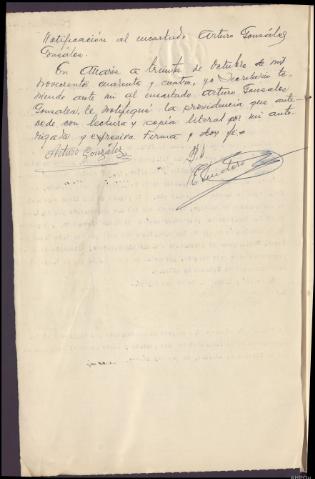 Notificación al encartado Arturo González
González.
En a treinta de octubre de mil
novecientos cuarenta y cuatro, yo Secretario te-
niendo ante mi al encartado Arturo Gonzales
Gonzalez, le notifiqué la providencia que ante-
cede con lectura y copia literal por mi auto-
rizada y expresiva firma y doy fe=
Arturo González